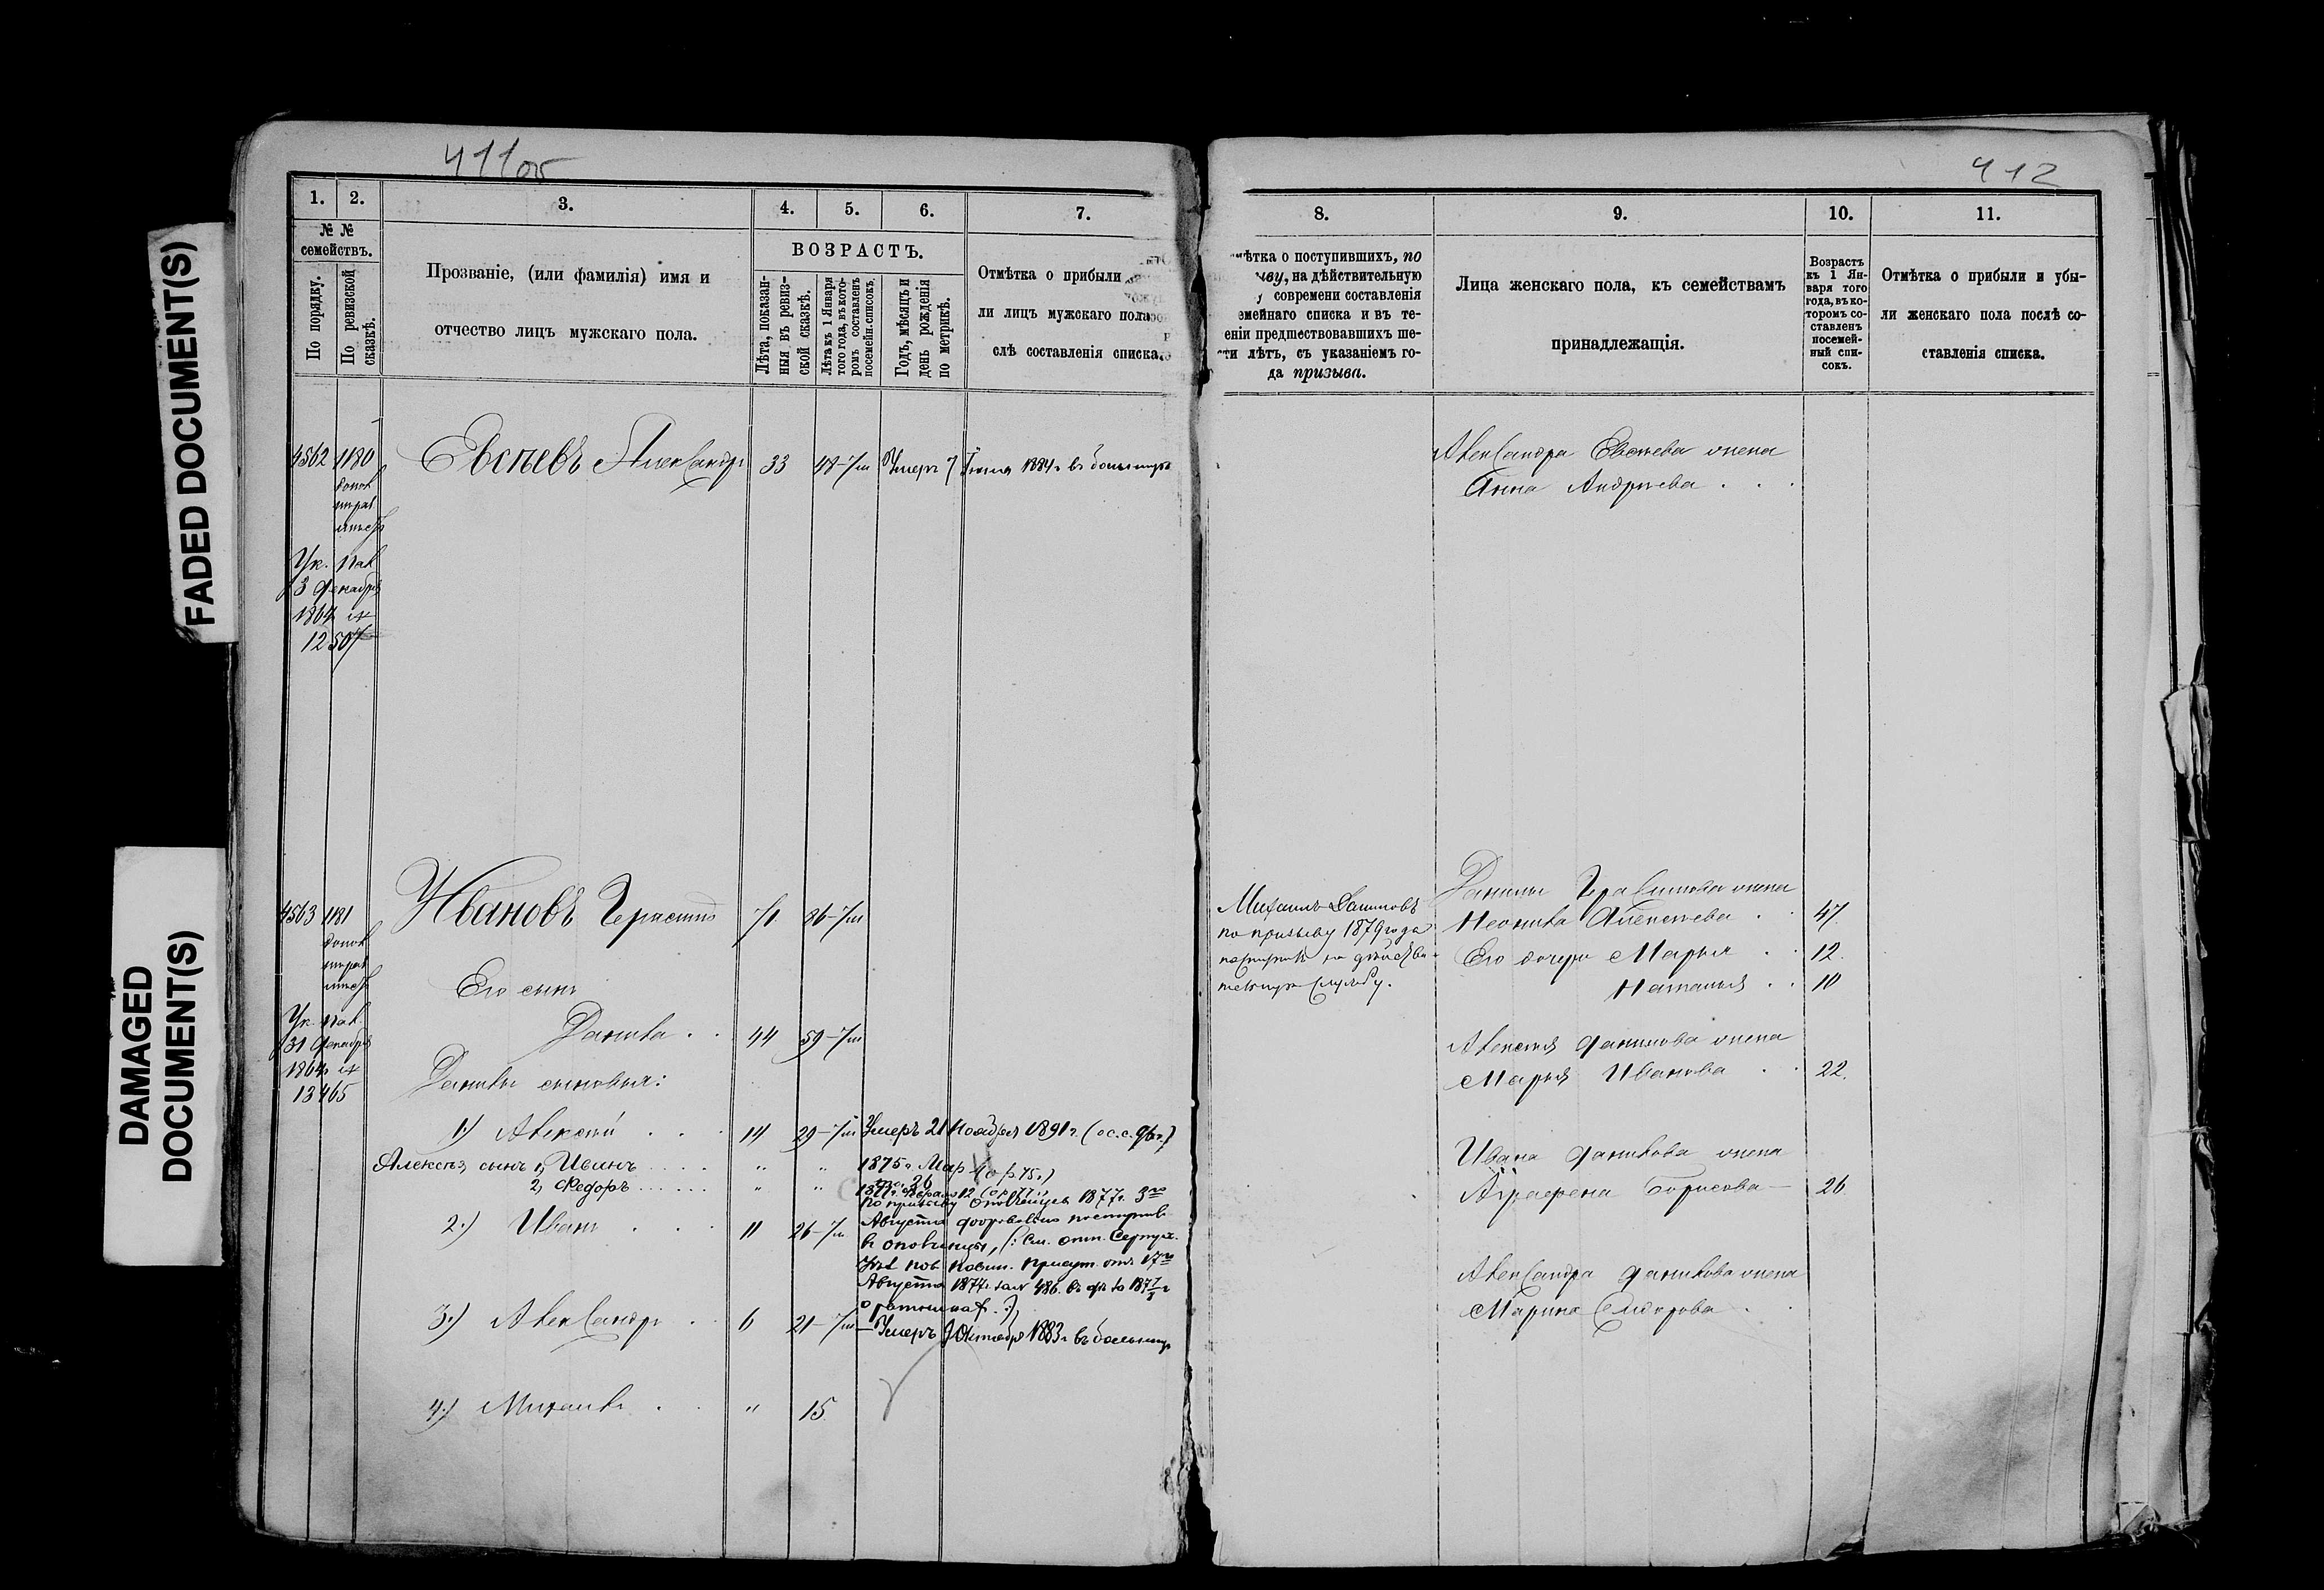 FADED DOCUMENT(S)
DAMAGED DOCUMENT(S)
411об
1. 2. 3. 4. 5. 6. 7.
№ № семействъ.
По порядку.
По ревизской сказкѣ.
Прозваніе, (или фамилія) имя и
отчество лицъ мужскаго пола.
ВОЗРАСТЪ.
Лѣта, показан-
ныя въ ревиз-
ской сказкѣ.
Лѣта къ 1 Января
того года, въ кото-
ромъ составленъ
посемейн. списокъ
Годъ, мѣсяцъ и
день рожденія
по метрикѣ.
Отмѣтка о прибыли
ли лицъ мужскаго пола
слѣ составленія списка.
4562 1180 Евсѣевъ Александръ 33 48 Умеръ 7 Іюня 1884 г. въ больницѣ
Ук. Пал.
13 Декабря
1864 г.
12507
4563 1181 Ивановъ 71 86
Его сынъ
Данила 44 59
Ук. Пал.
31 Декабря
1864 г.
13465
Данилы сыновья:
1.) Алексѣй 14 29 Умеръ 21 Ноября 1891 г.
Алексѣя сынъ 1, Иванъ „ „ 1875 г. Мар
2, Федоръ „ „
По призыву ополченцевъ 1877 г. 3го
2.) Иванъ 11 26 Августа добровольно поступилъ
въ ополченцы, (: См. отн. Серпух.
Уѣз. пов. повин. присут. отъ 17го
Августа 1877 г. за № 486.
о ратникахъ. :)
3.) Александръ 6 21 – Умеръ Октября 1883 г. въ больницѣ
4.) Михаилъ „ 15
412
8. 9. 10. 11.
мѣтка о поступившихъ, по
ыву, на дѣйствительную
у современи составленія
емейнаго списка и въ те-
еніи предшествовавшихъ ше-
сти лѣтъ, съ указаніемъ го-
да призыва.
Лица женскаго пола, къ семействамъ
принадлежащія.
Возрастъ
къ 1 Ян-
варя того
года, въ ко-
торомъ со-
ставленъ
посемей-
ный спи-
сокъ.
Отмѣтка о прибыли и убы-
ли женскаго пола послѣ со-
ставленія списка.
Александра Евсѣева жена
Анна Андреева
Михаилъ Даниловъ
по призыву 1879 года
поступилъ на дѣйстви-
тельную службу.
Данилы жена
Неонила Алексѣева 47.
Его дочери Марья 12.
Наталья 10
Алексѣя Данилова жена
Марья Иванова 22.
Ивана Данилова жена
Аграфена Борисова 26
Александра Данилова жена
Марина Сидорова